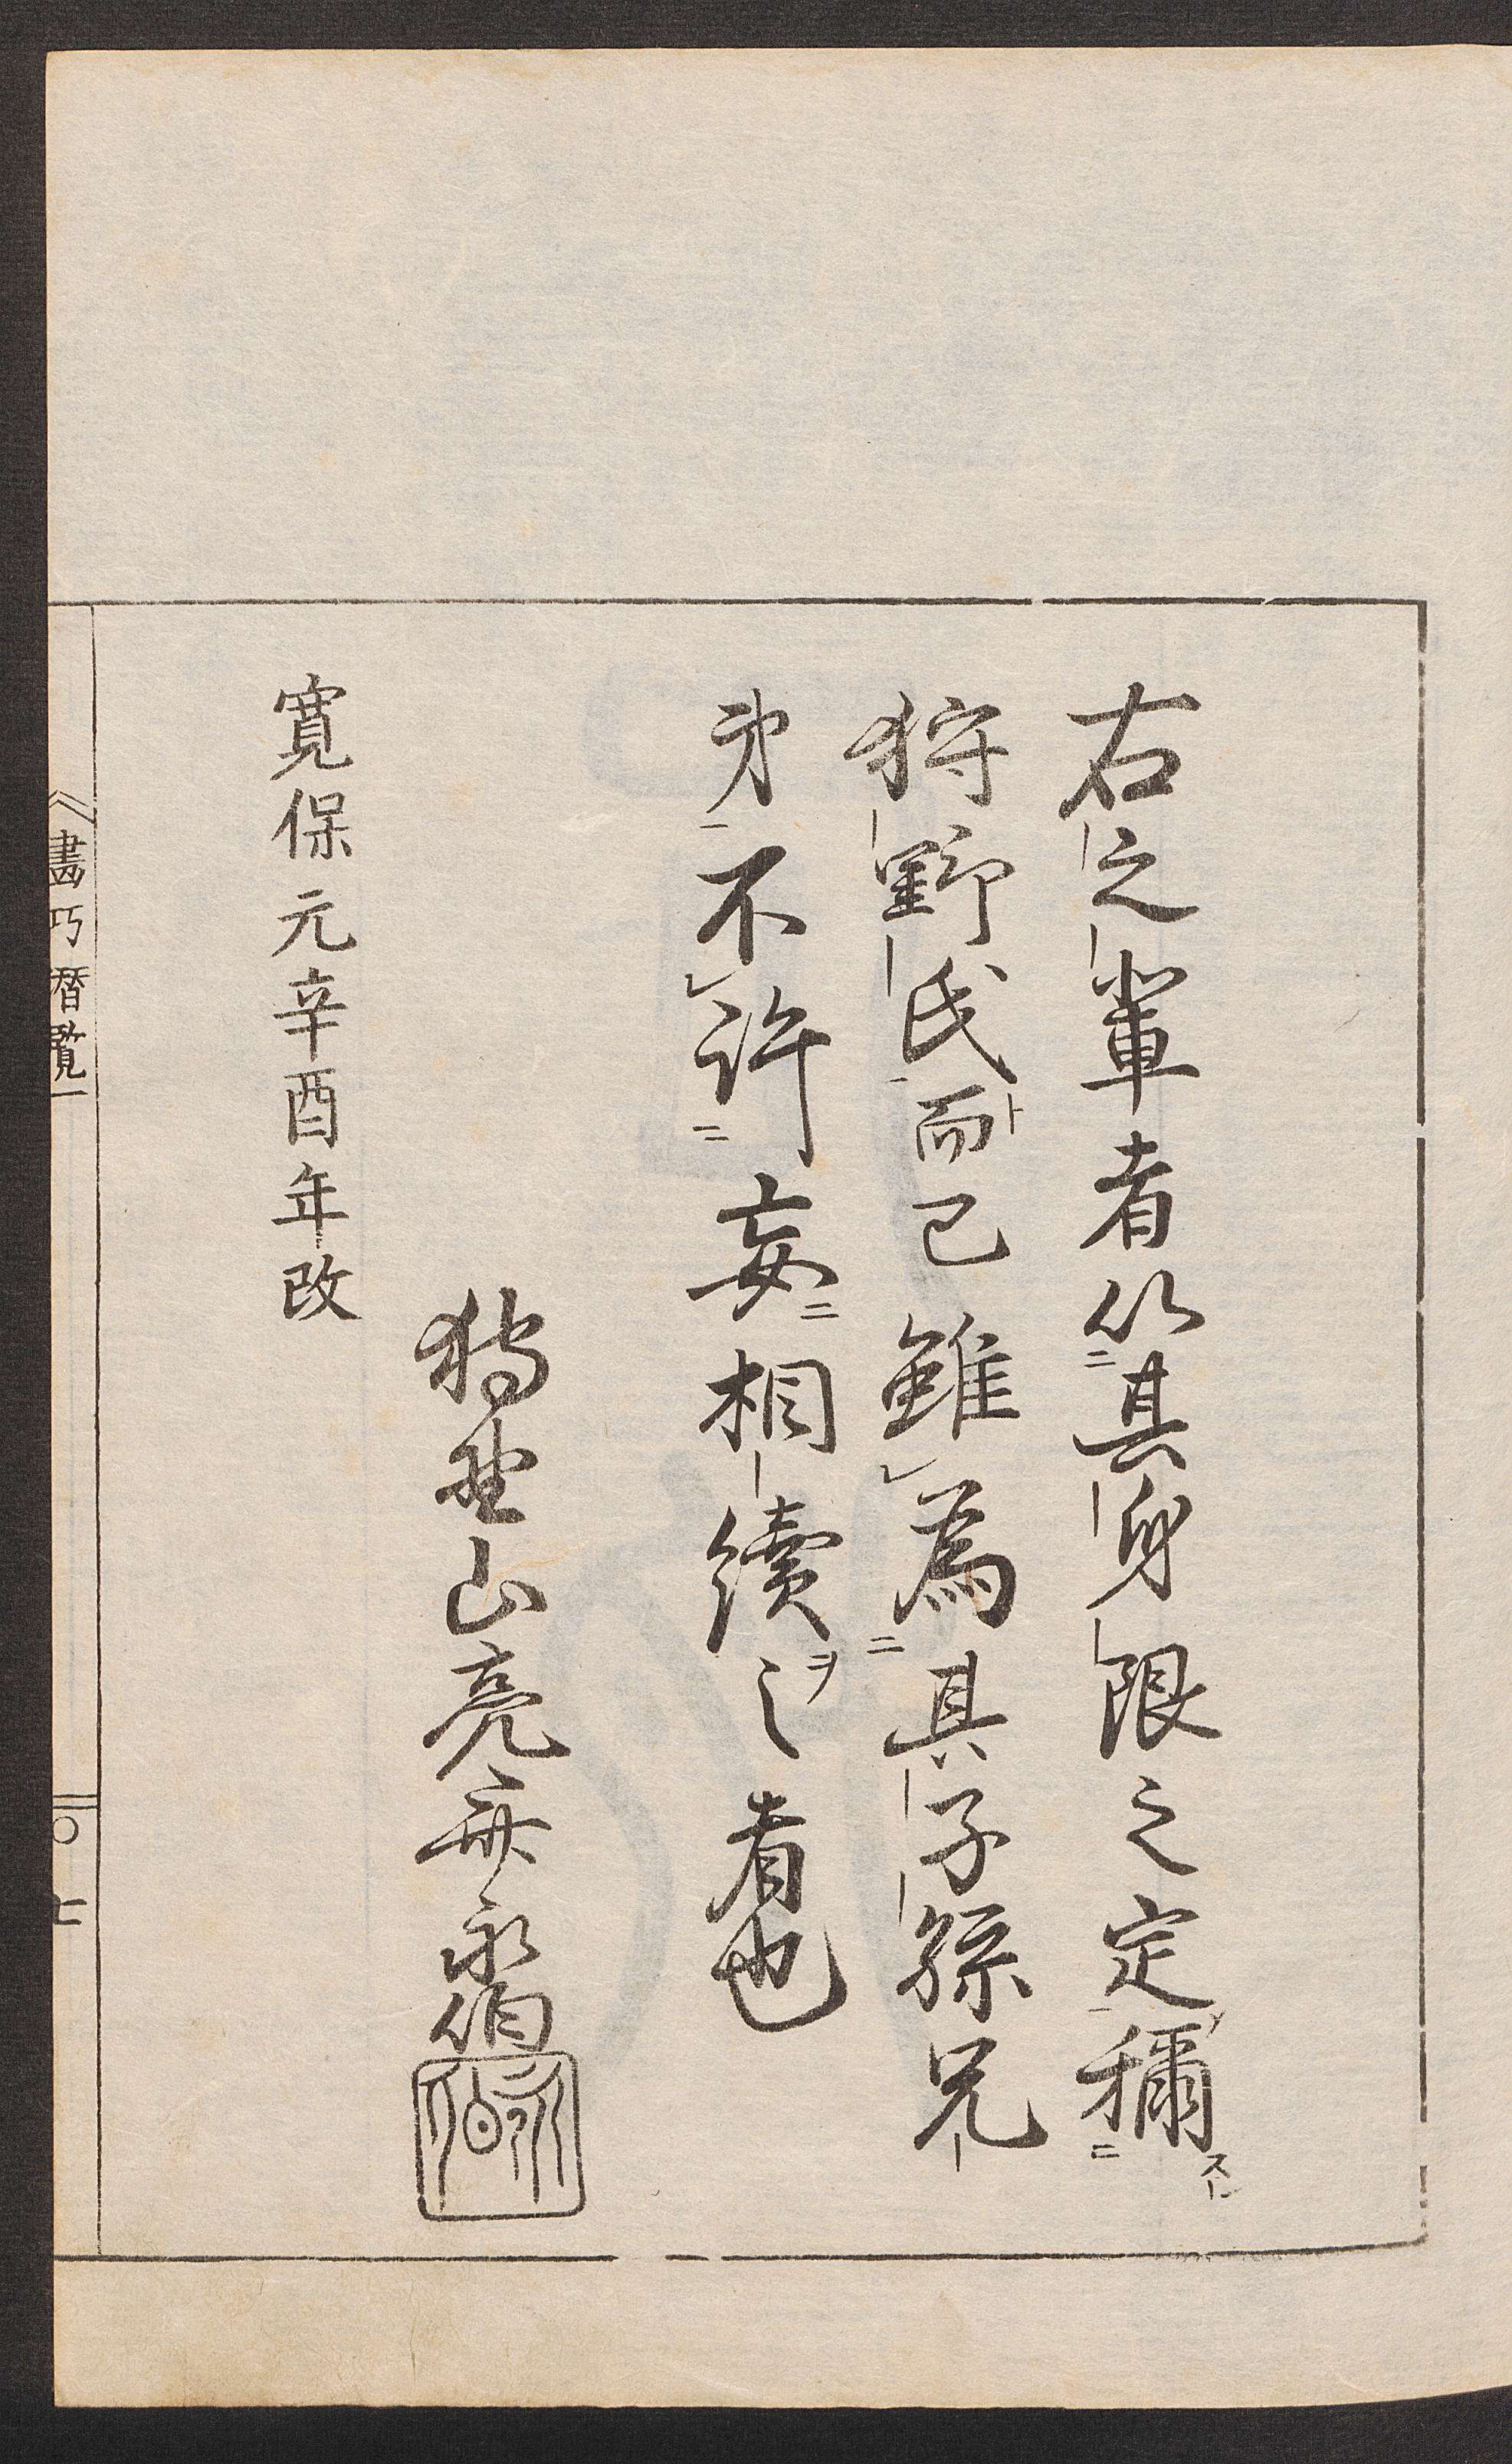 右之輩者以其身限之定稱
狩野氏而已雖為其子孫兄
弟不許妄相續之者也
狩野山亮 永伯
寛保元辛酉年改
畫巧潛覧一
〇七